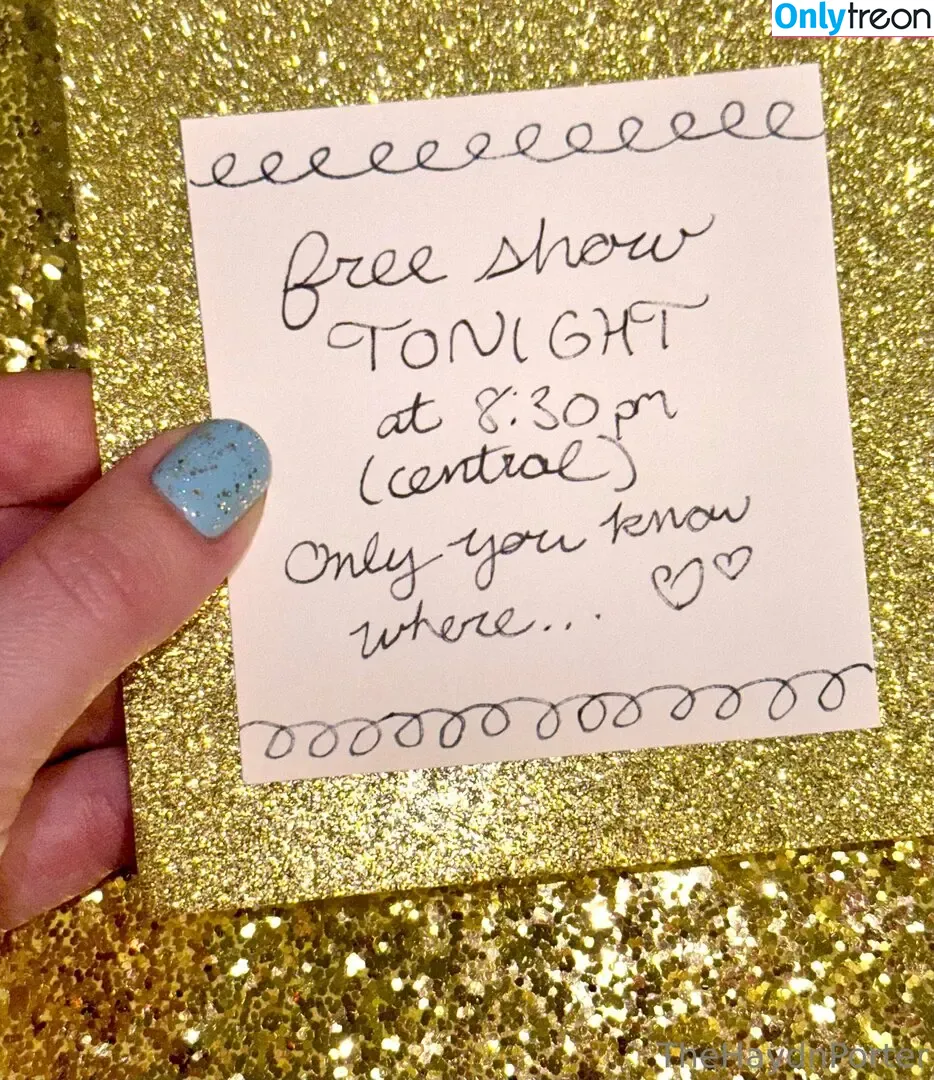 Onlytreon
free show
TONIGHT
at 8:30 pm
(central)
Only you know
where... ♡♡
TheHaydnPorter